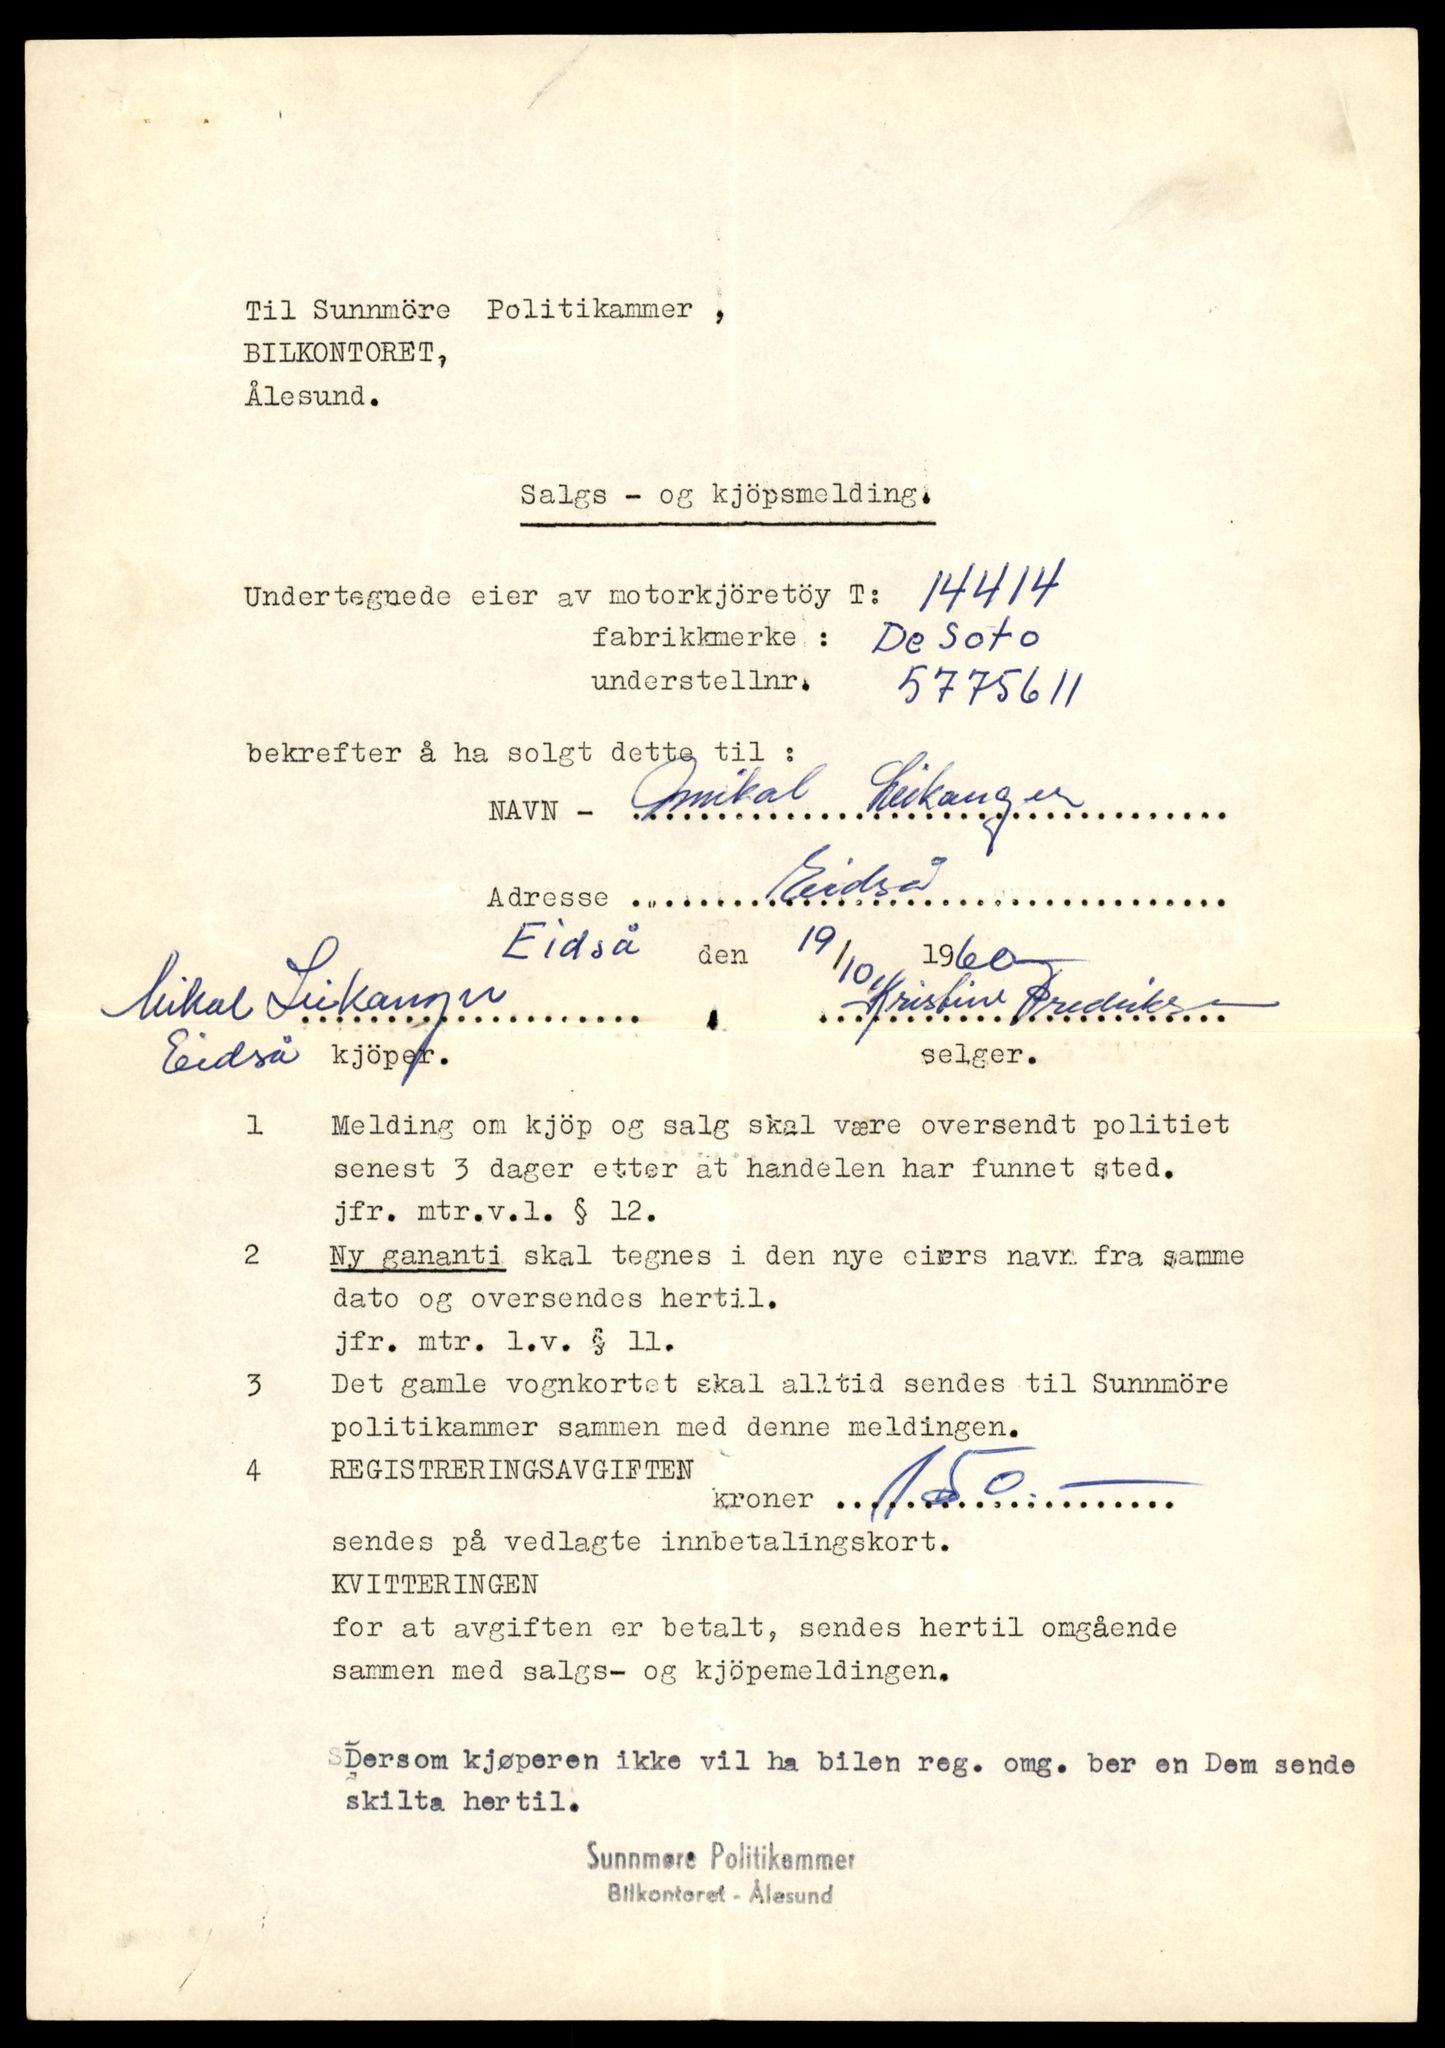 Til Sunnmöre Politikammer ,
BILKONTORET,
Ålesund.
Salgs - og kjöpsmelding.
Undertegnede eier av motorkjöretöy T: 14414
fabrikkmerke : De Soto
understellnr. 5775611
bekrefter å ha solgt dette til :
NAVN - Mikal Leikanger
Adresse Eidså
Eidså den 19/10 1960
Mikal Leikanger Kristine Fredriks
Eidså kjöper. selger.
1 Melding om kjöp og salg skal være oversendt politiet
senest 3 dager etter at handelen har funnet sted.
jfr. mtr.v.l. § 12.
2 Ny gananti skal tegnes i den nye eiers navn fra samme
dato og oversendes hertil.
jfr. mtr. l.v. § 11.
3 Det gamle vognkortet skal alltid sendes til Sunnmöre
politikammer sammen med denne meldingen.
4 REGISTRERINGSAVGIFTEN
kroner 150.-
sendes på vedlagte innbetalingskort.
KVITTERINGEN
for at avgiften er betalt, sendes hertil omgående
sammen med salgs- og kjöpemeldingen.
Dersom kjøperen ikke vil ha bilen reg. omg. ber en Dem sende
skilta hertil.
Sunnmøre Politikammer
Bilkontoret - Ålesund